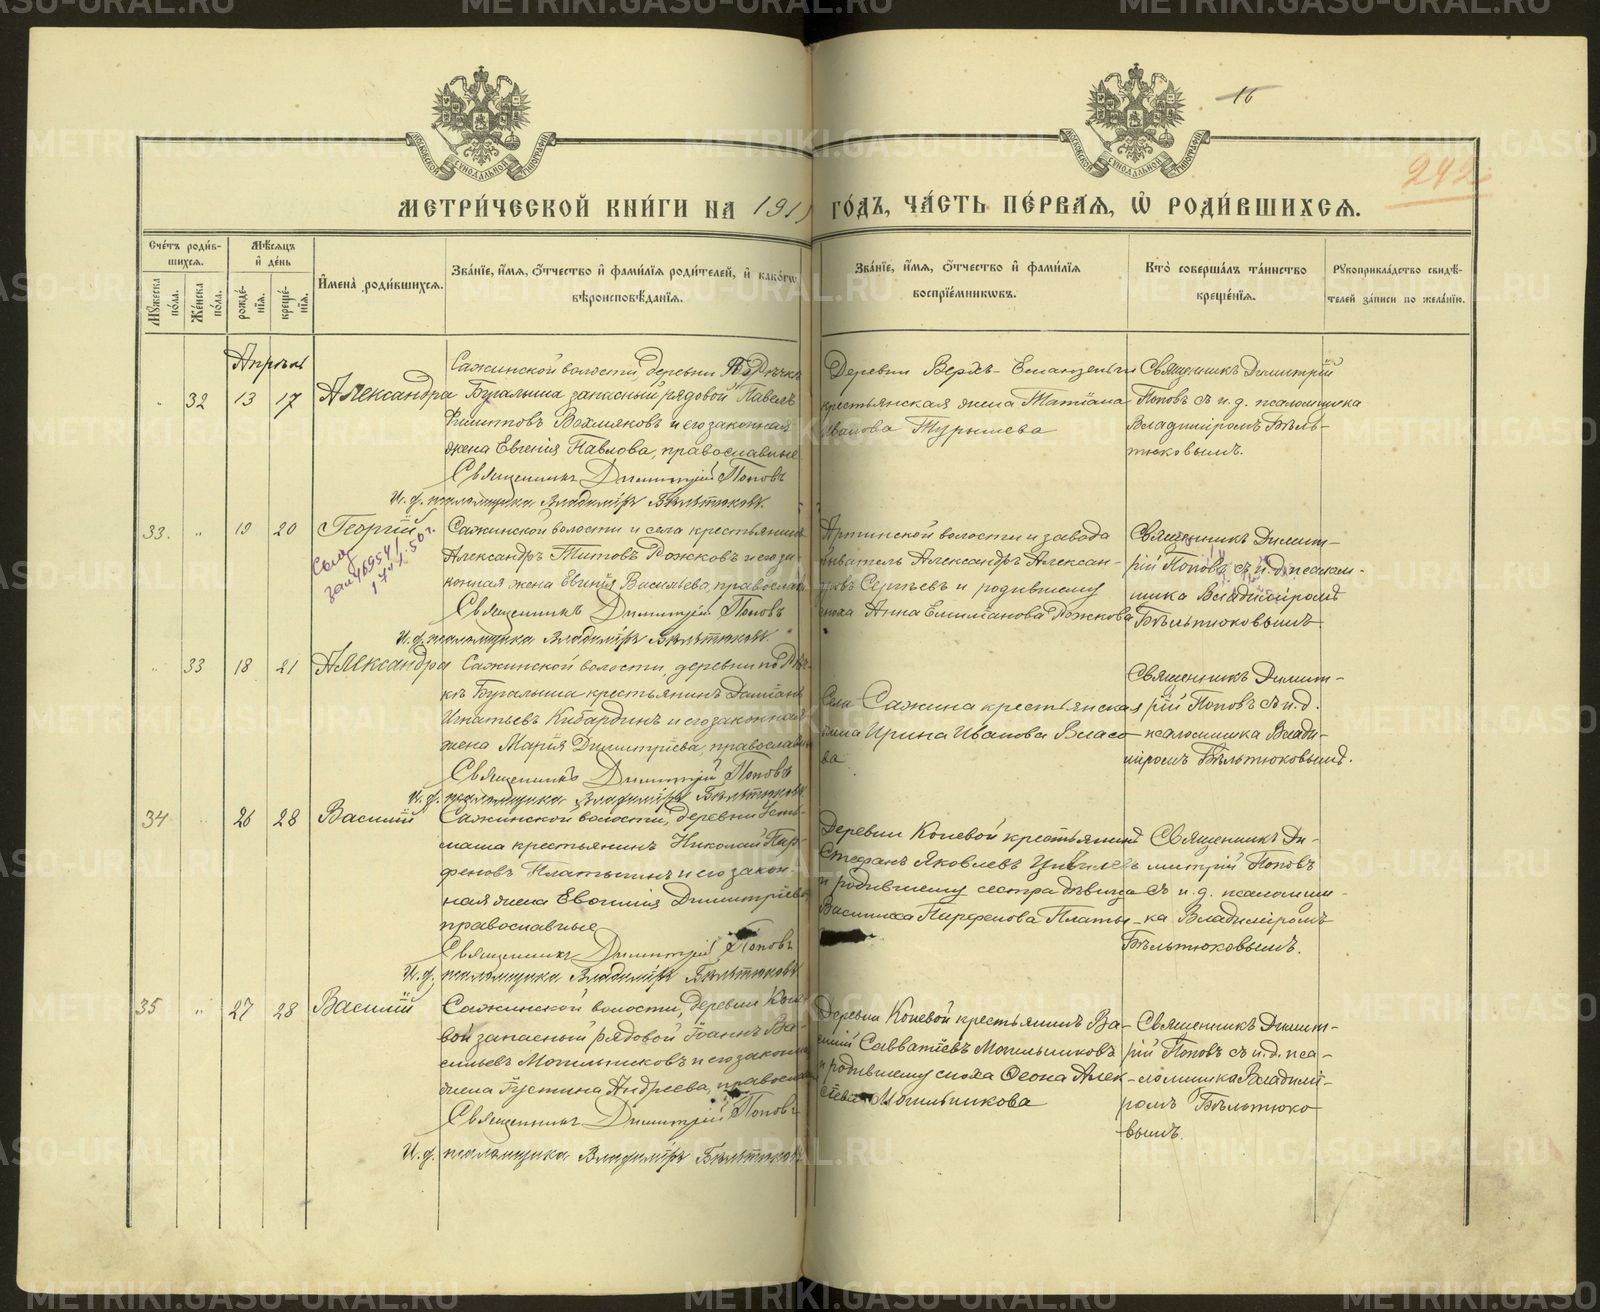 16
242
МЕТРИ́ЧЕСКОЙ КНИ́ГИ НА 191 ГО́ДЪ, ЧА́СТЬ ПЕ́РВАЯ, Ѡ҆ РОДИ́ВШИХСЯ.
Сче́тъ роди́в-
шихся.
Мꙋ́жеска по́ла.
Же́нска по́ла.
Мѣ́сяцъ и҆ де́нь
рожде́-
нїя.
креще́-
нїя.
И҆мена̀ роди́вшихся.
Зва́нїе, и҆́мя, ѻ҆́тчество и҆ фами́лїя роди́телей, и҆ како́гѡ
вѣроисповѣ́данїя.
Зва́нїе, и҆́мя, ѻ҆́тчество и҆ фами́лїя
воспрїе́мникѡвъ.
Кто̀ соверша́лъ та́инство
креще́нїя.
Рꙋкоприкла́дство свидѣ́-
телей за́писи по жела́нїю.
Апрѣль
" 32 13 17 Александра
Сажинской волости, деревни по Рѣчкѣ
Бугалыша запасный рядовой Павелъ
Филиповъ Вахмяковъ и его законная
жена Евгенія Павлова, православные
Священникъ Димитрій Поповъ
И. д. псаломщика Владиміръ Бѣльтюковъ
Деревни Верхъ-
крестьянская жена Татіана
Иванова Турышева
Священникъ Димитрій
Поповъ съ и. д. псаломщика
Владиміромъ Бѣль-
тюковымъ.
33. " 19 20 Георгій
Сажинской волости и села крестьянинъ
Александръ Титовъ Рожковъ и его за-
конная жена Евгенія Васильева, православ
Священникъ Димитрій Поповъ
И. д. псаломщика Владиміръ Бѣльтюковъ
Артинской волости и завода
Александръ Алексан-
Сергѣевъ и родившему
Анна Рожкова
Священникъ Димит-
рій Поповъ съ и. д. псалом-
щика Владиміромъ
Бѣльтюковымъ
" 33 18 21 Александра
Сажинской волости, деревни по Рѣч-
кѣ Бугалыша крестьянинъ Даміанъ
Игнатьевъ Кибардинъ и его законная
жена Марія Димитріева, православн
Священникъ Димитрій Поповъ
И. д. псаломщика Владиміръ Бѣльтюковъ
Села Сажина крестьянская
жена Ирина Иванова Власо-
ва
Священникъ Димит-
рій Поповъ съ и. д.
псаломщика Влади-
міромъ Бѣльтюковымъ.
34 26 28 Василій
Сажинской волости, деревни Усть-
маша крестьянинъ Николай Пар-
феновъ Платынинъ и его закон
ная жена Евгенія Димитріева
православные
Священникъ Димитрій Поповъ
И. д. псаломщика Владиміръ Бѣльтюковъ
Деревни Коневой крестьянинъ
Стефанъ Яковлевъ
и родившему сестра дѣвица
Василиса Парфенова Платы-
Священникъ Ди-
митрій Поповъ
съ и. д. псаломщи-
ка Владиміромъ
Бѣльтюковымъ.
35 " 27 28 Василій
Сажинской волости, деревни Коне
вой запасный рядовой Іоаннъ Ва-
сильевъ Могильниковъ и его законна
жена Іустина Андреева, православн
Священникъ Димитрій Поповъ
И. д. псаломщика Владиміръ Бѣльтюковъ
Деревни Коневой крестьянинъ Ва-
силій Савватіевъ Могильниковъ
и родившему сноха Ѳеона Алек-
сіева Могильникова
Священникъ Димит-
рій Поповъ съ и. д. пса-
ломщика Владимі-
ромъ Бѣльтюко-
вымъ.
METRIKI.GASO-URAL.RU